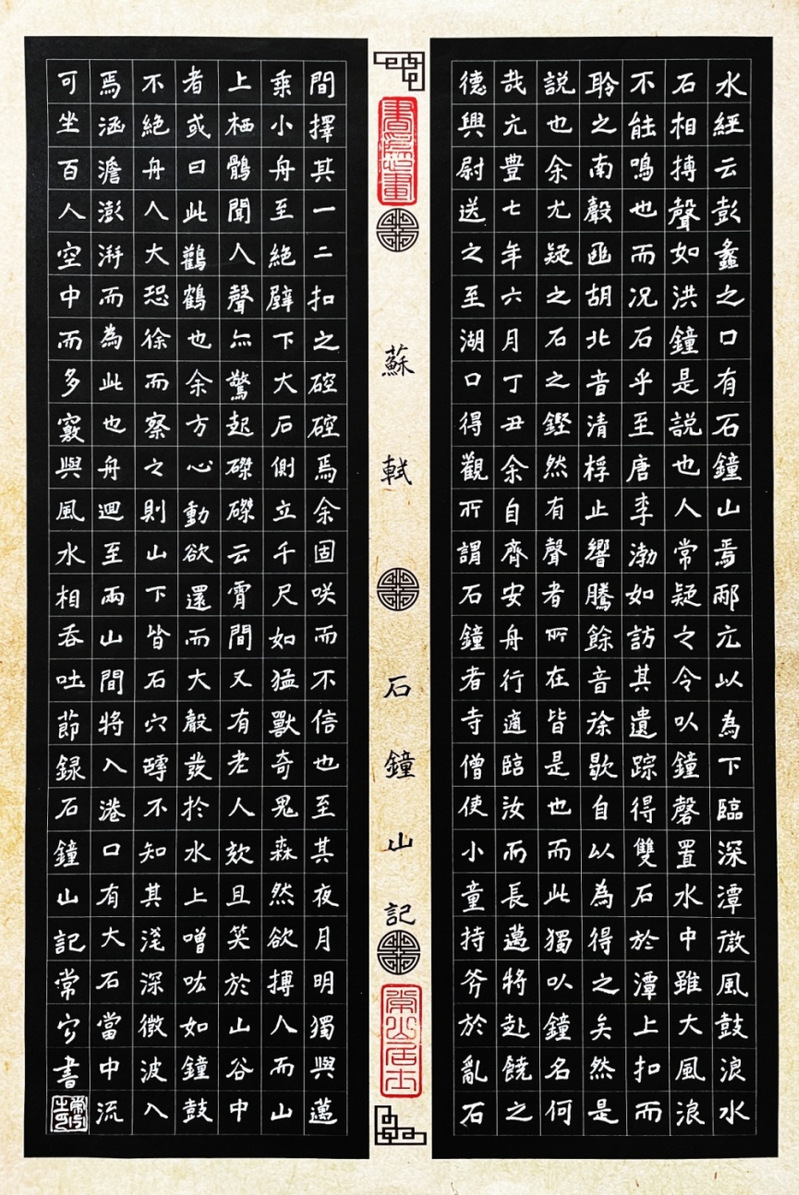 水經云彭蠡之口有石鐘山焉酈元以為下臨深潭微風鼓浪水
石相搏聲如洪鐘是説也人常疑之令以鐘磬置水中雖大風浪
不能鳴也而况石乎至唐李渤如訪其遺踪得雙石於潭上扣而
聆之南聲函胡北音清桴止響騰餘音徐歇自以為得之矣然是
説也余尤疑之石之鏗然有聲者所在皆是也而此獨以鐘名何
哉元豐七年六月丁丑余自齊安舟行適臨汝而長邁將赴饒之
德興尉送之至湖口得觀所謂石鐘者寺僧使小童持斧於亂石
蘇軾 石鐘山記
間擇其一二扣之硿硿焉余固咲而不信也至其夜月明獨與邁
乘小舟至絕壁下大石側立千尺如猛獸奇鬼森然欲搏人而山
上栖鶻聞人聲亦驚起磔磔云霄間又有老人欬且笑於山谷中
者或曰此鸛鶴也余方心動欲還而大聲發於水上噌吰如鐘鼓
不絕舟人大恐徐而察之則山下皆石穴罅不知其淺深微波入
焉涵澹澎湃而為此也舟迴至兩山間將入港口有大石當中流
可坐百人空中而多竅與風水相吞吐節録石鐘山記常宁書